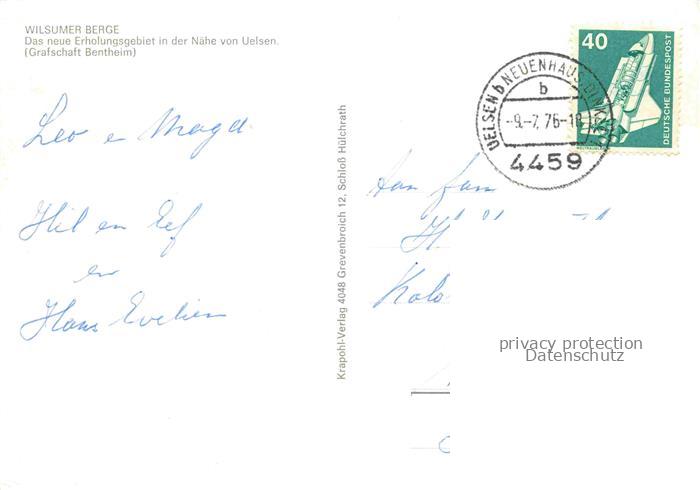 WILSUMER BERGE
Das neue Erholungsgebiet in der Nähe von Uelsen.
(Grafschaft Bentheim)
Leo e Magd
Hil en Eef
en
Hans Evelien
Krapohl-Verlag 4048 Grevenbroich 12, Schloß Hülchrath
UELSEN b NEUENHAUS, DINKEL
b
-9.-7.76-18
4459
40
DEUTSCHE BUNDESPOST
Aan fam
H
Kolo
privacy protection
Datenschutz